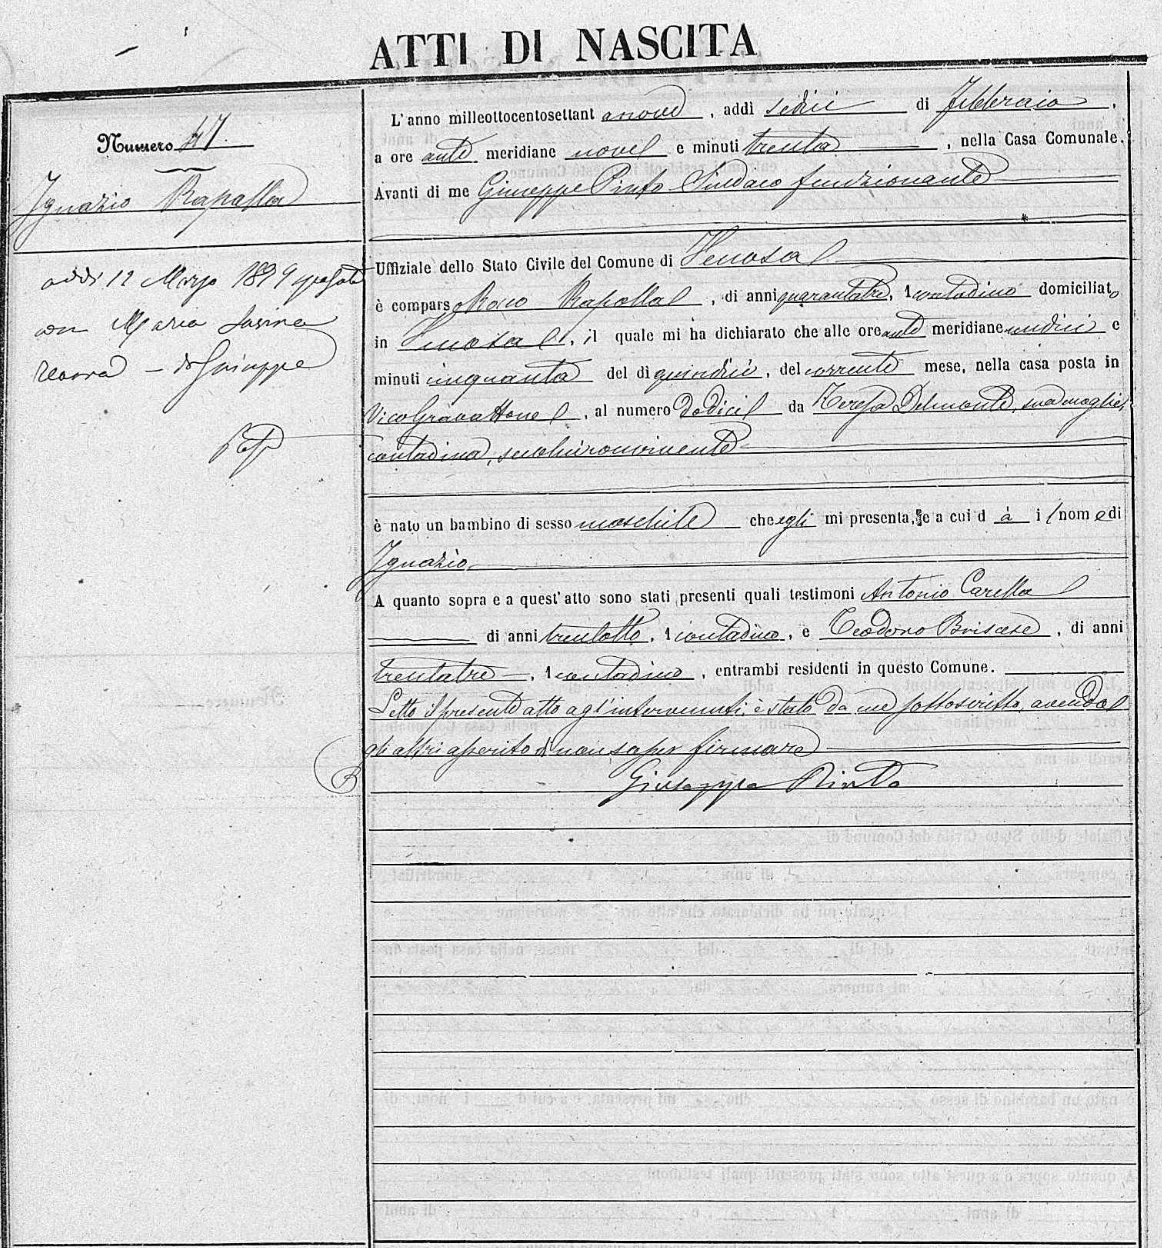 ATTI DI NASCITA
Numero 47.
Ignazio Rapolla
addì 12 Marzo 1899 sposato
con Maria Savina
di Giuseppe
L'anno milleottocentosettant anove, addì sedici di Febbraio,
a ore ante meridiane nove e minuti trenta, nella Casa Comunale.
Avanti di me Giuseppe Pinto Sindaco funzionante
Uffiziale dello Stato Civile del Comune di Venosa
è compars o Rocco Rapolla, di anni quarantatre, contadino domiciliato
in Venosa, il quale mi ha dichiarato che alle ore ante meridiane undici e
minuti cinquanta del dì quindici, del corrente mese, nella casa posta in
Vico, al numero dodici da Teresa Delmonte, sua moglie,
contadina, seco lui convivente
è nato un bambino di sesso maschile che egli mi presenta, e a cui d à i l nom e di
Ignazio.
A quanto sopra e a quest'atto sono stati presenti quali testimoni Antonio Carella
di anni trentotto, contadino, e Teodoro Briscese, di anni
trentatre, contadino, entrambi residenti in questo Comune.
Letto il presente atto agl'intervenuti, è stato da me sottoscritto, avendo
gli altri asserito di non saper firmare
Giuseppe Pinto